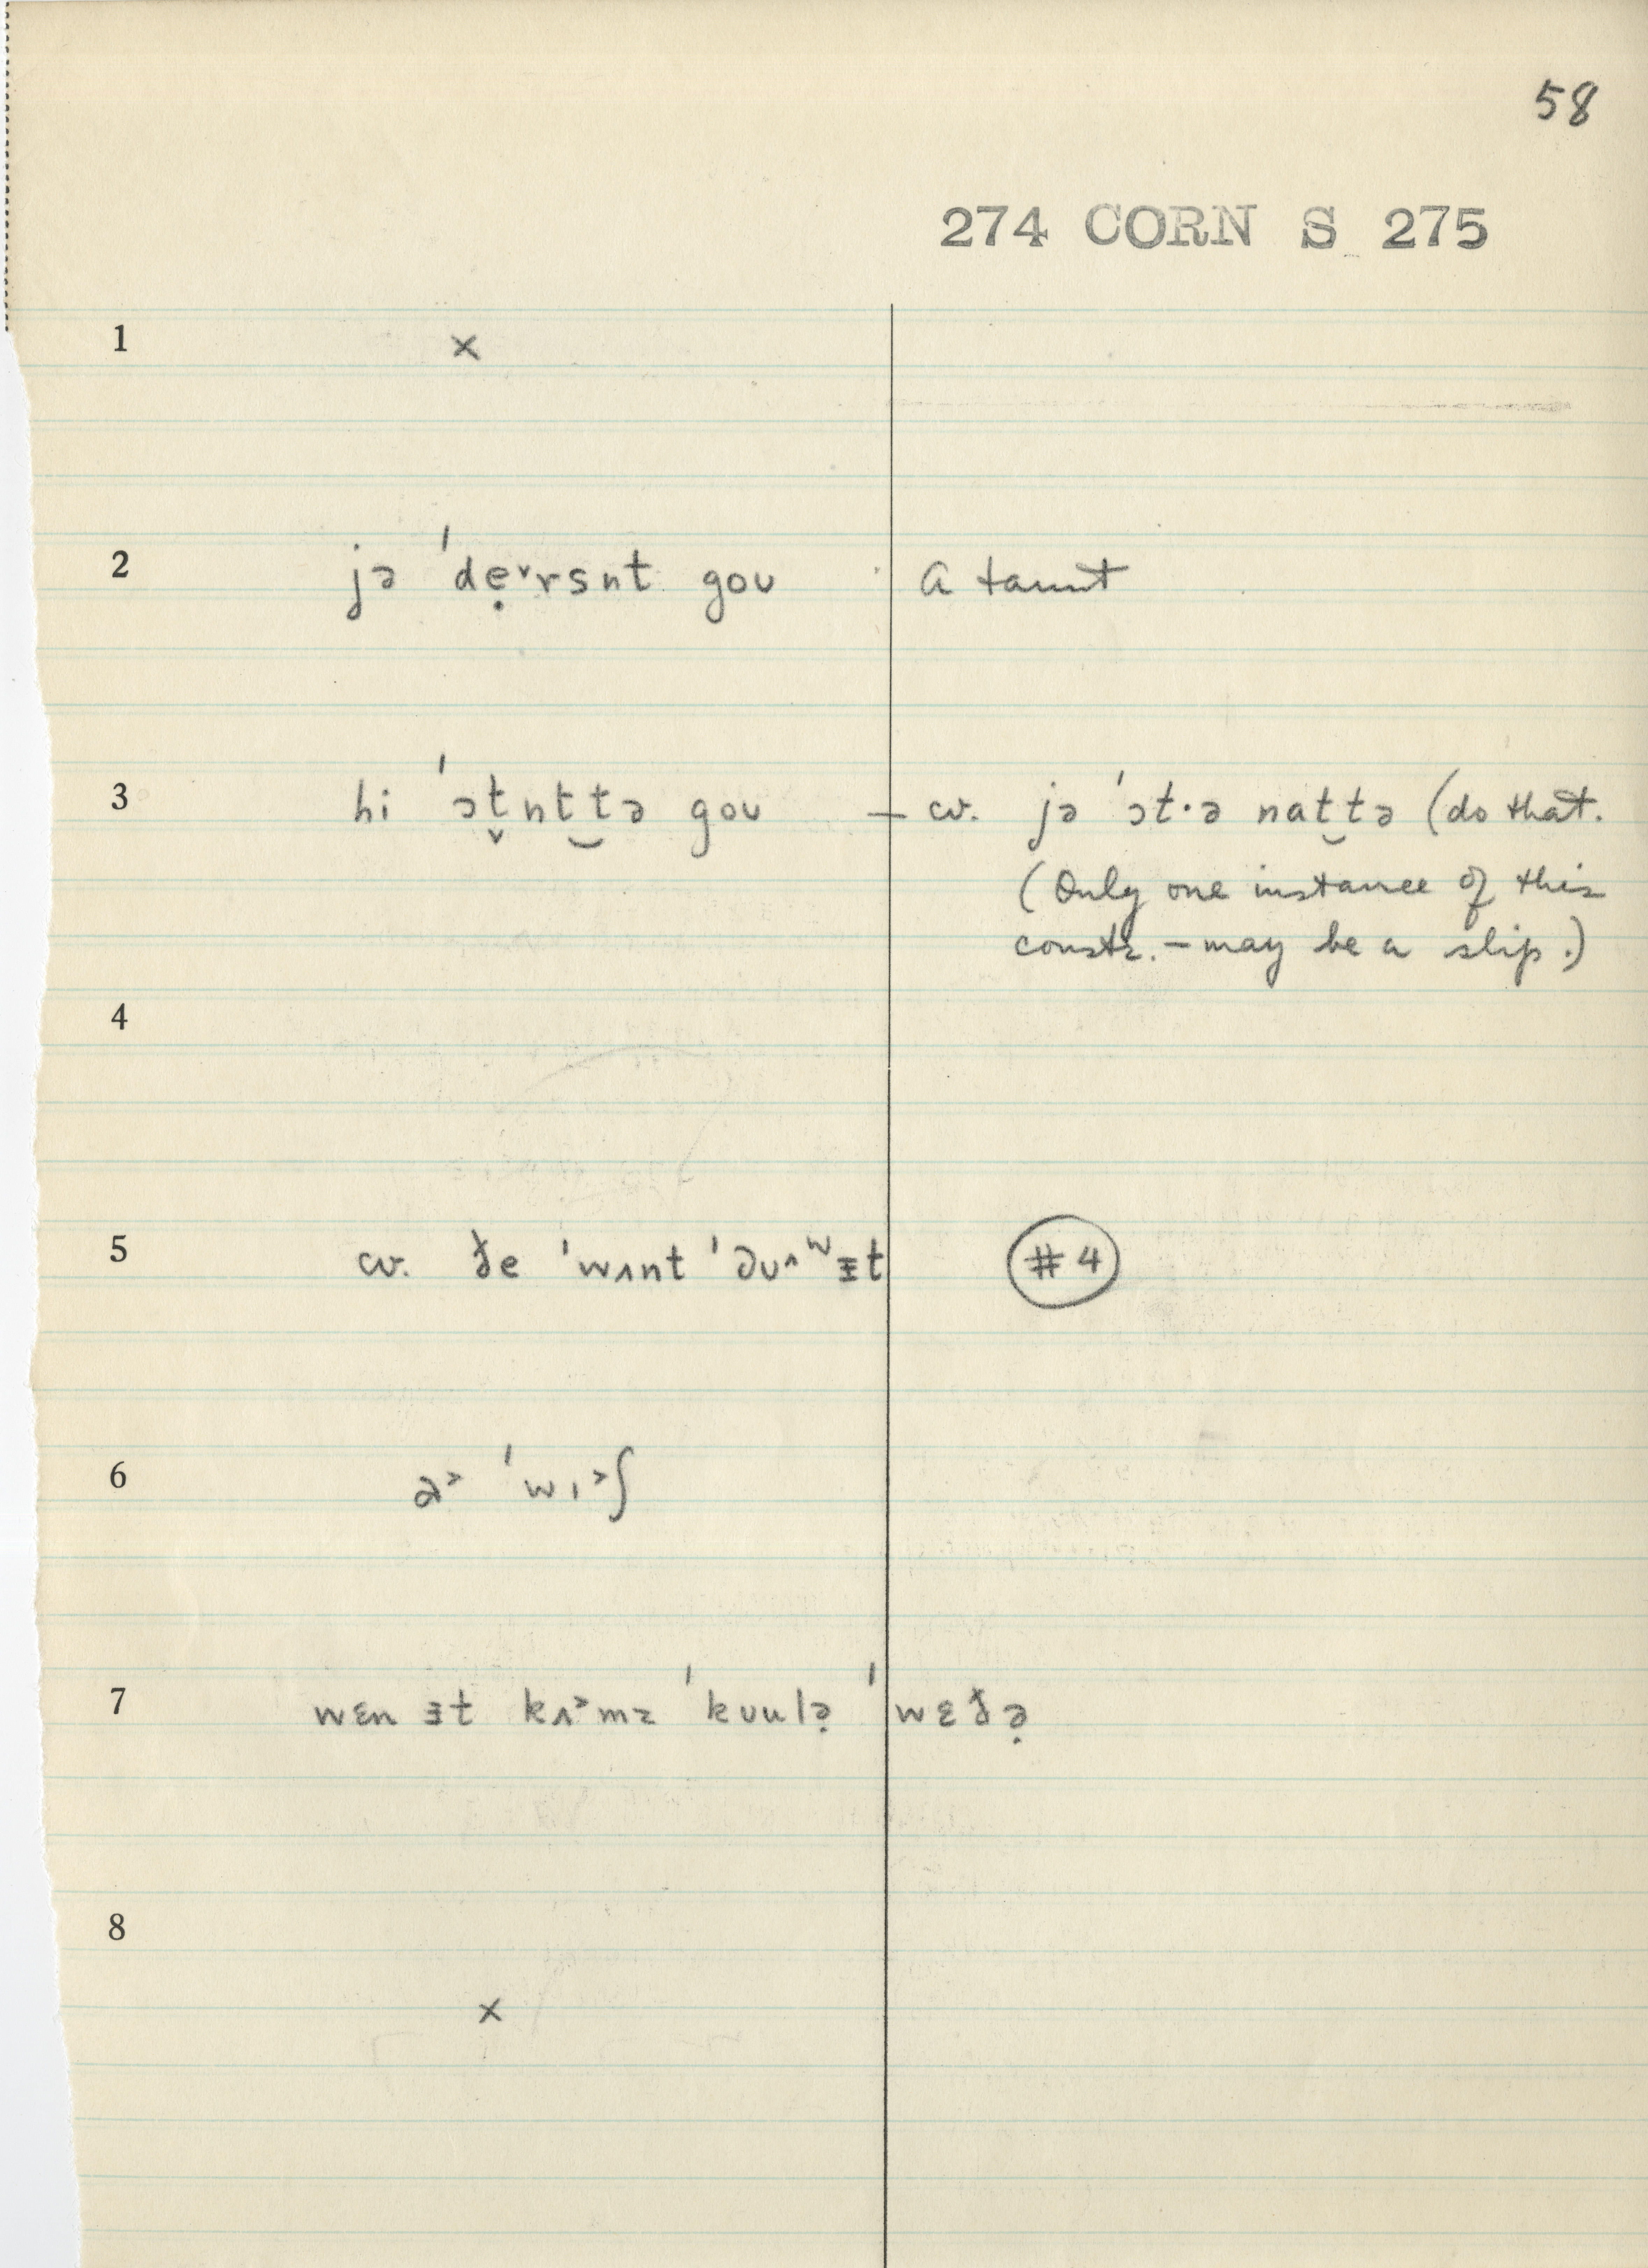 58
274 CORN S 275
1 ×
2 jə ˈdẹ˅rsnt goʊ a taunt
3 hi ˈɔt̬nt‿tə goʊ — cv. jə ˈɔt·ə nat‿tə (do that.
(Only one instance of this
constr. – may be a slip.)
4
5 cv. ðe ˈwʌnt
#4
6 ˈwɪ˃ʃ
7 wɛn ɪt kʌ˃mz ˈkʊulə̣ ˈwɛðə̣
8
×